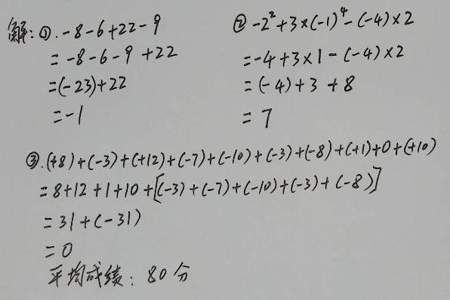 解：①. -8-6+22-9
= -8-6-9+22
=(-23)+22
=-1
② -2²+3×(-1)⁴-(-4)×2
=-4+3×1-(-4)×2
=(-4)+3+8
=7
③.(+8)+(-3)+(+12)+(-7)+(-10)+(-3)+(-8)+(+1)+0+(+10)
=8+12+1+10+[(-3)+(-7)+(-10)+(-3)+(-8)]
=31+(-31)
=0
平均成绩：80分